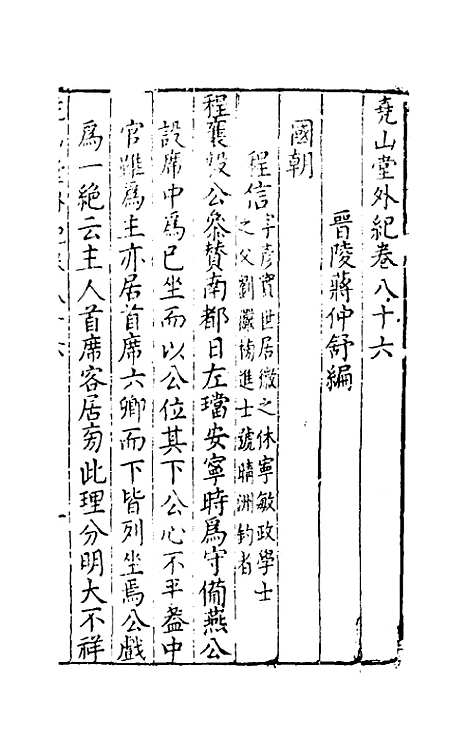 堯山堂外紀卷八十六
晉陵蔣仲舒編
國朝
程信字彥實世居徽之休寧敏政學士
之父劉瀛榜進士號晴洲釣者
程襄毅公參贊南都日左璫安寧時爲守備燕公
設席中爲已坐而以公位其下公心不平蓋中
官雖爲主亦居首席六卿而下皆列坐焉公戲
爲一絕云主人首席客居旁此理分明大不祥